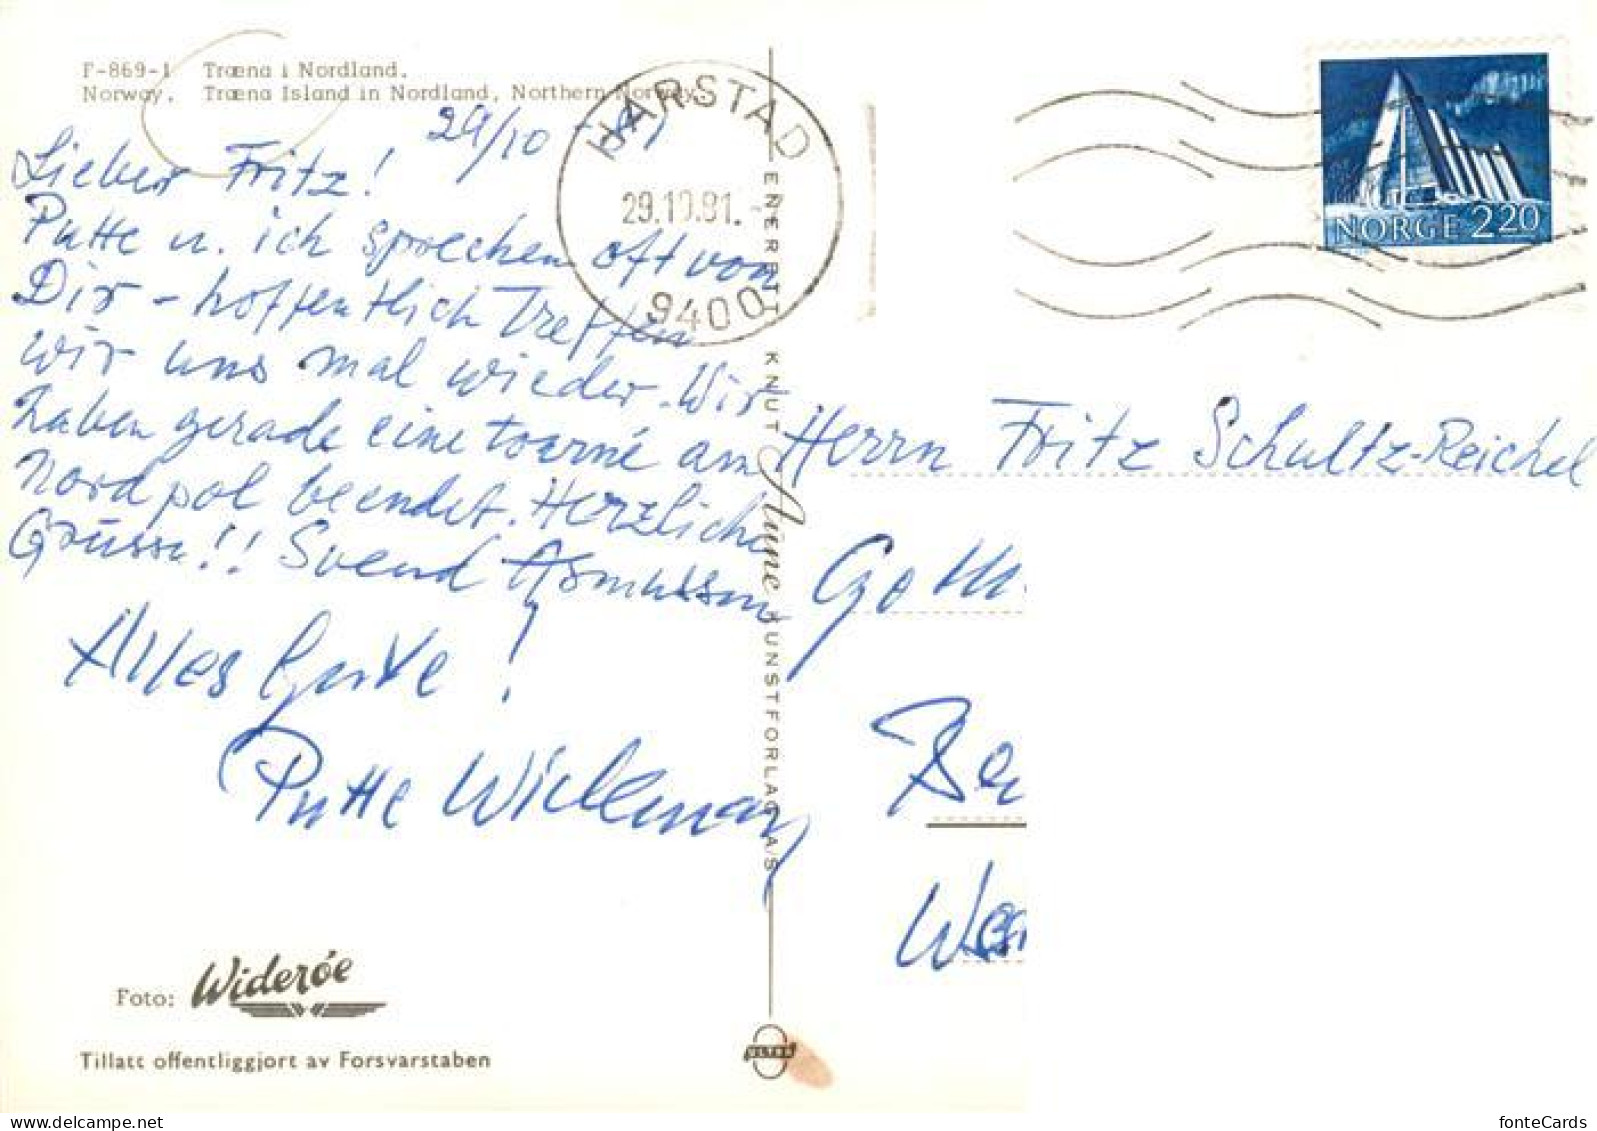 F-869-1 Træna i Nordland.
Norway. Træna Island in Nordland, Northern Norway.
29/10 -81
Lieber Fritz!
Putte u. ich sprechen oft von
Dir - hoffentlich Treffen
wir uns mal wieder. Wir
haben gerade eine tourné am
Nordpol beendet. Herzliche
Grüsse!! Svend Asmussen
Alles Gute!
Putte Wickman
Foto: Widerøe
Tillatt offentliggjort av Forsvarstaben
HARSTAD
29.10.81.
9400
ENERETT KNUT Aune KUNSTFORLAG A/S
NORGE 220
Herrn Fritz Schultz-Reichel
fonteCards